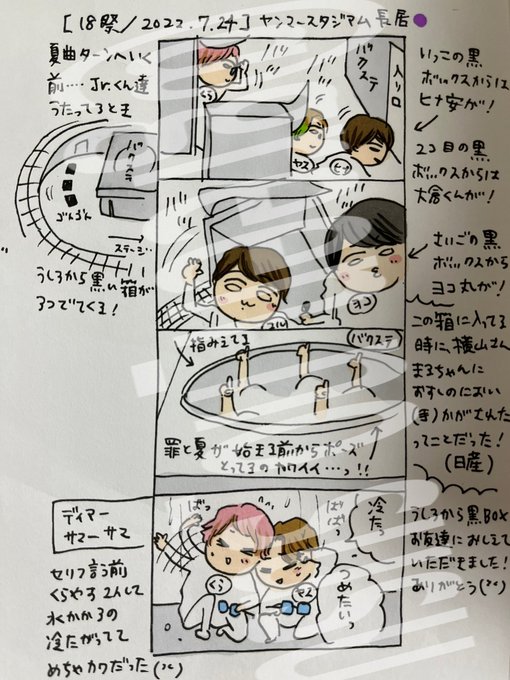 [18祭/2022.7.24]ヤンマースタジアム長居
夏曲ターンへいく
前…Jr.くん達
うたってるとき
バクステ
ごんごん
ステージ…
うしろから黒い箱が
3つでてくる!
バクステ
入り口
くら
ヤス
ヒナ
いっこの黒
ボックスからは
ヒナ安が!
2コ目の黒
ボックスからは
大倉くんが!
マル
ヨコ
さいごの黒
ボックスから
ヨコ丸が!
この箱に入ってる
時に、横山さん
まるちゃんに
おすしのにおい
(手)かがされた
ってことだった!
(日産)
指みえてる
(バクステ)
罪と夏が始まる前からポーズ
とってるのカワイイ…っ!!
ディアー
サマーサマ
セリフ言う前
くらやす2人して
水かかるの
冷たがってて
めちゃカワだった
ばっ
ばばっ
冷たっ
つめたいっ
くら
ヤス
うしろから黒BOX
お友達におしえて
いただきました!
ありがとう